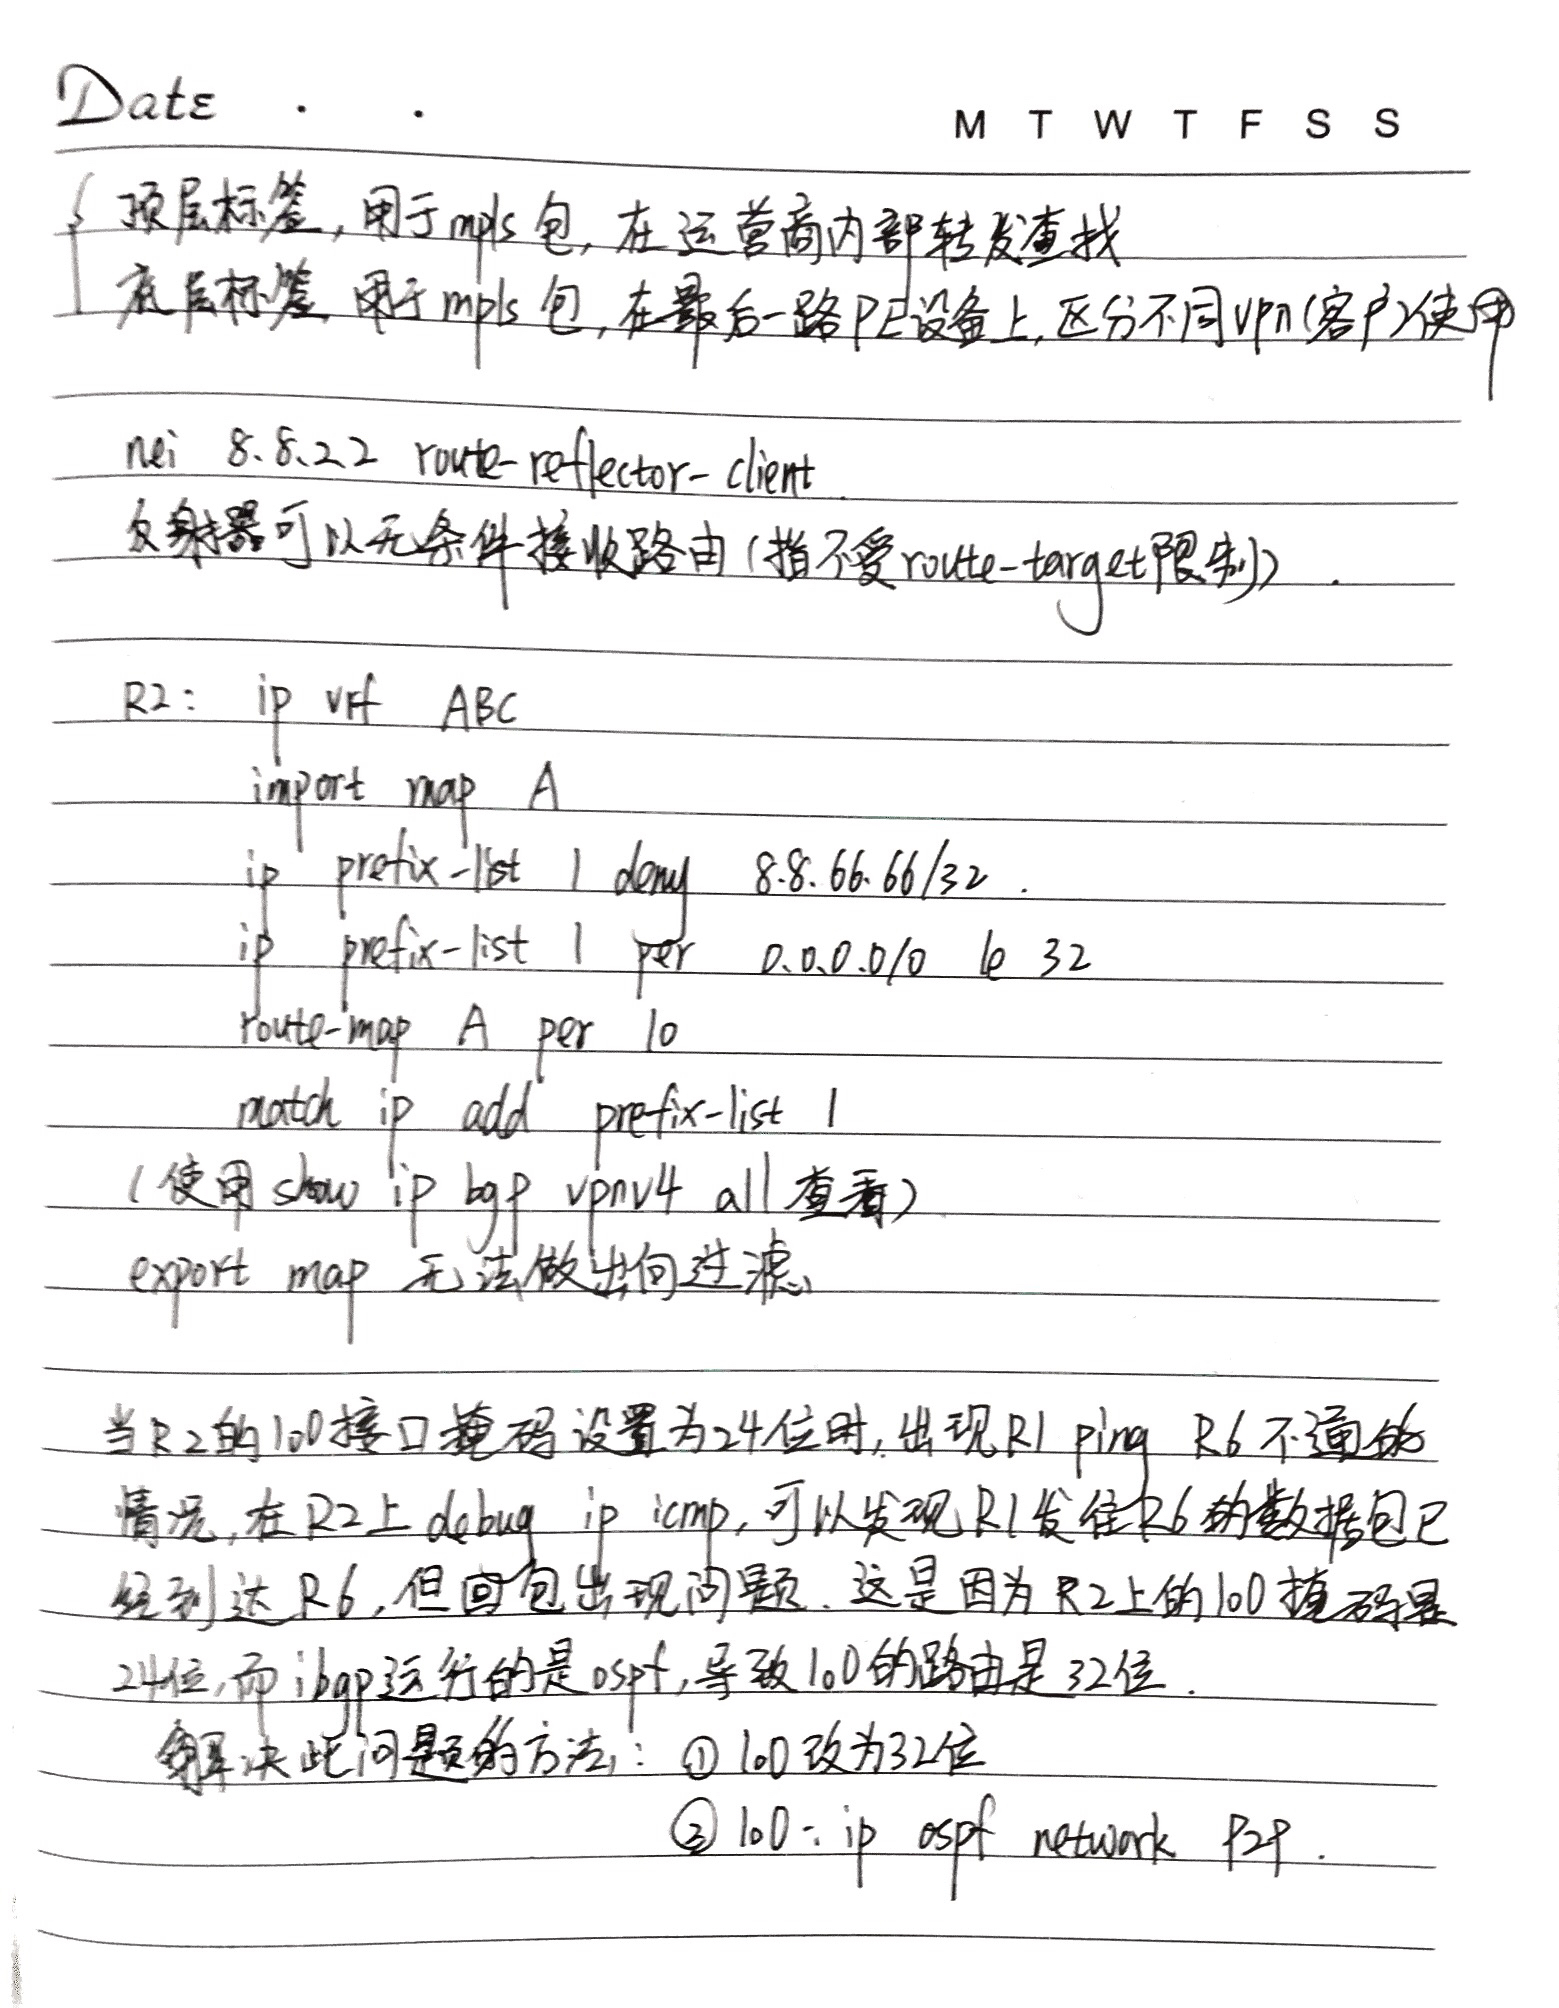 Date . .
M T W T F S S
顶层标签,用于mpls包,在运营商内部转发查找
底层标签 用于mpls包,在最后一路PE设备上,区分不同vpn(客户)使用
nei 8.8.2.2 route-reflector-client
反射器可以无条件接收路由(指不受route-target限制)
R2: ip vrf ABC
import map A
ip prefix-list 1 deny 8.8.66.66/32
ip prefix-list 1 per 0.0.0.0/0 le 32
route-map A per 10
match ip add prefix-list 1
(使用show ip bgp vpnv4 all查看)
export map 无法做出向过滤
当R2的lo0接口掩码设置为24位时,出现R1 ping R6不通的
情况,在R2上debug ip icmp,可以发现R1发往R6的数据包已
经到达R6,但回包出现问题.这是因为R2上的lo0掩码是
24位,而ibgp运行的是ospf,导致lo0的路由是32位.
解决此问题的方法: ① lo0改为32位
② lo0: ip ospf network P2P.